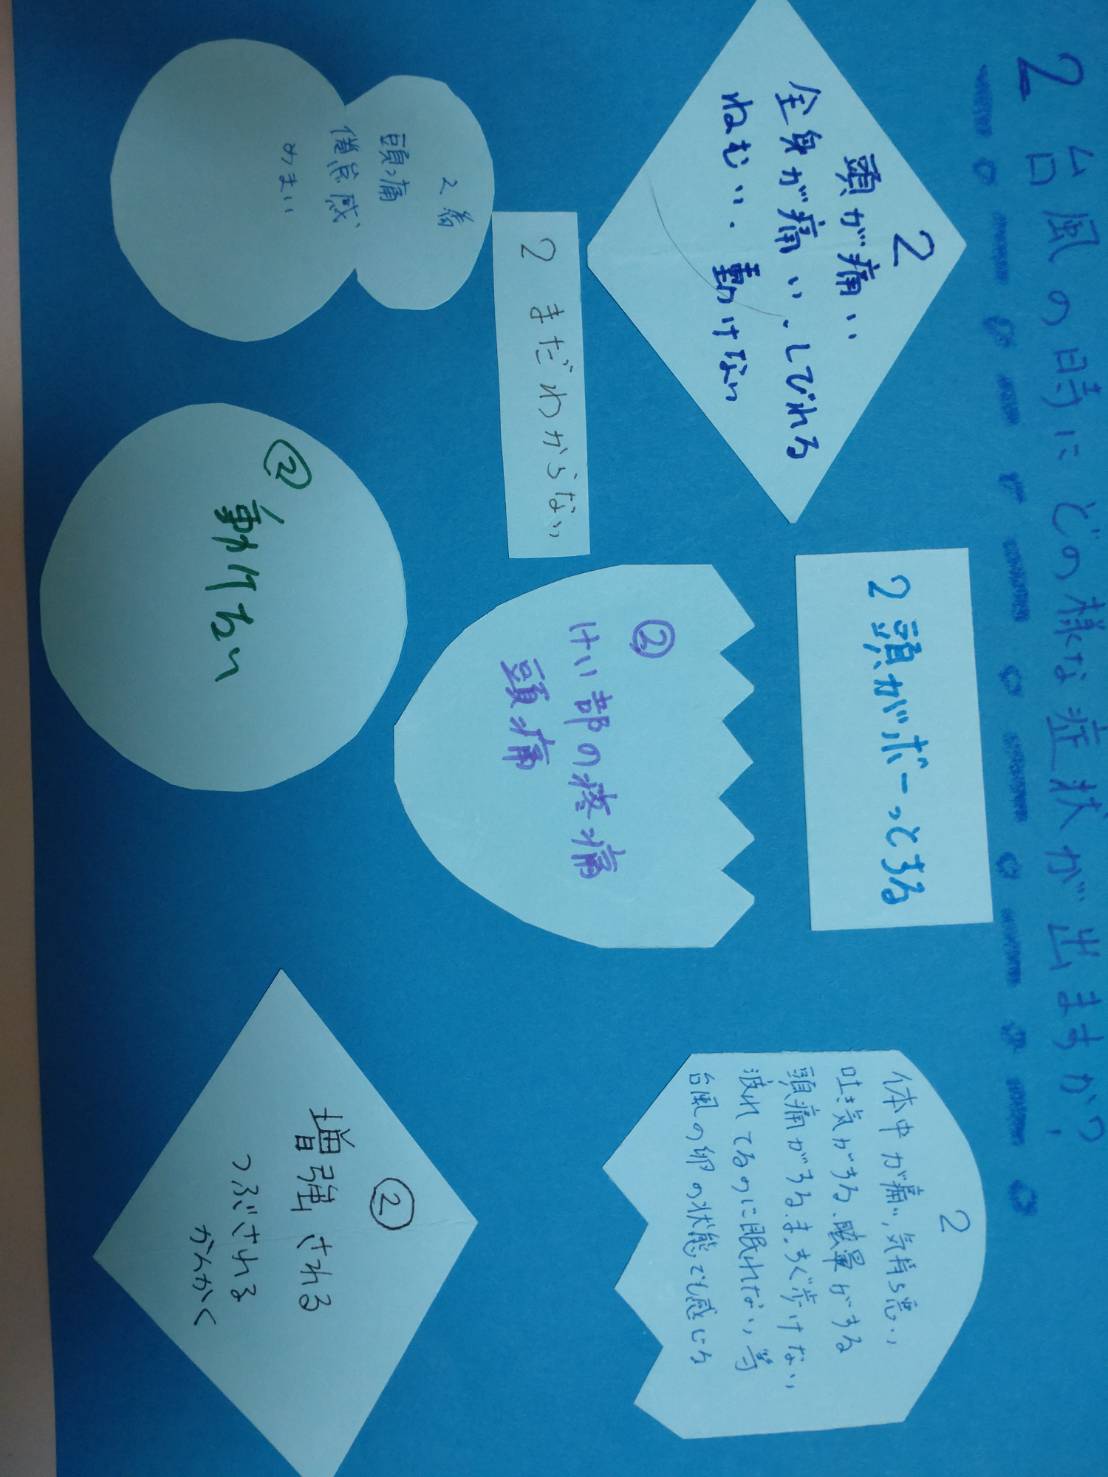 2 台風の時にどの様な症状が出ますか?
2
頭が痛い
全身が痛い、しびれる
ねむい、動けない
2 頭がボーっとする
2
体中が痛い、気持ち悪い、
吐き気がする、眩暈がする
頭痛がする、まっすぐ歩けない
疲れてるのに眠れない、等
台風の卵の状態でも感じる
2 まだわからない
②
けい部の疼痛
頭痛
2番
頭痛
倦怠感
めまい
②
動けない
②
増強される
つぶされる
かんかく